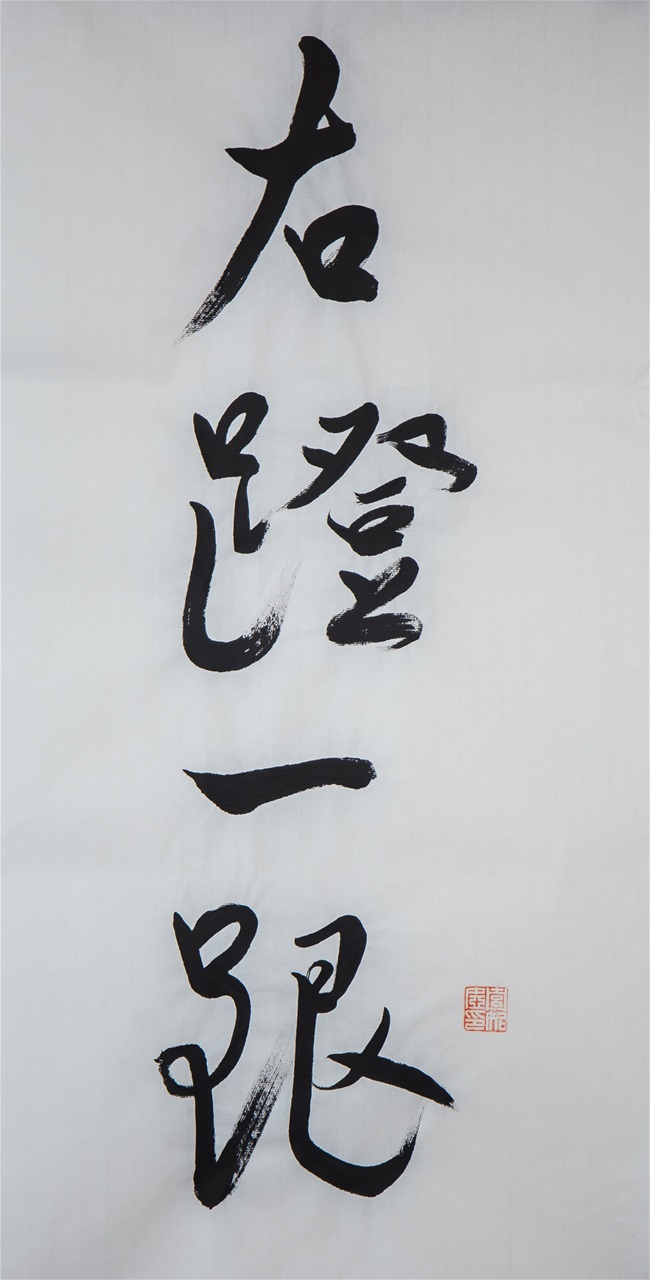 右蹬一跟